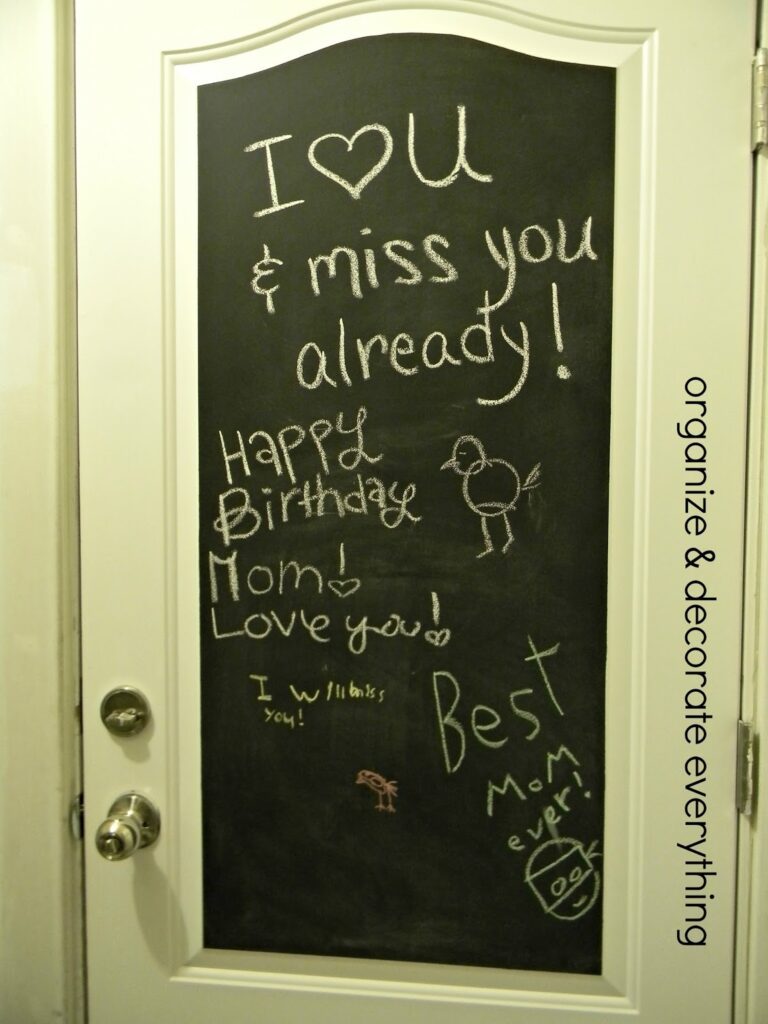 I ♡ U
& miss you
already!
Happy
Birthday
Mom!
Love you!
I will miss
you!
Best
Mom!
ever
organize & decorate everything